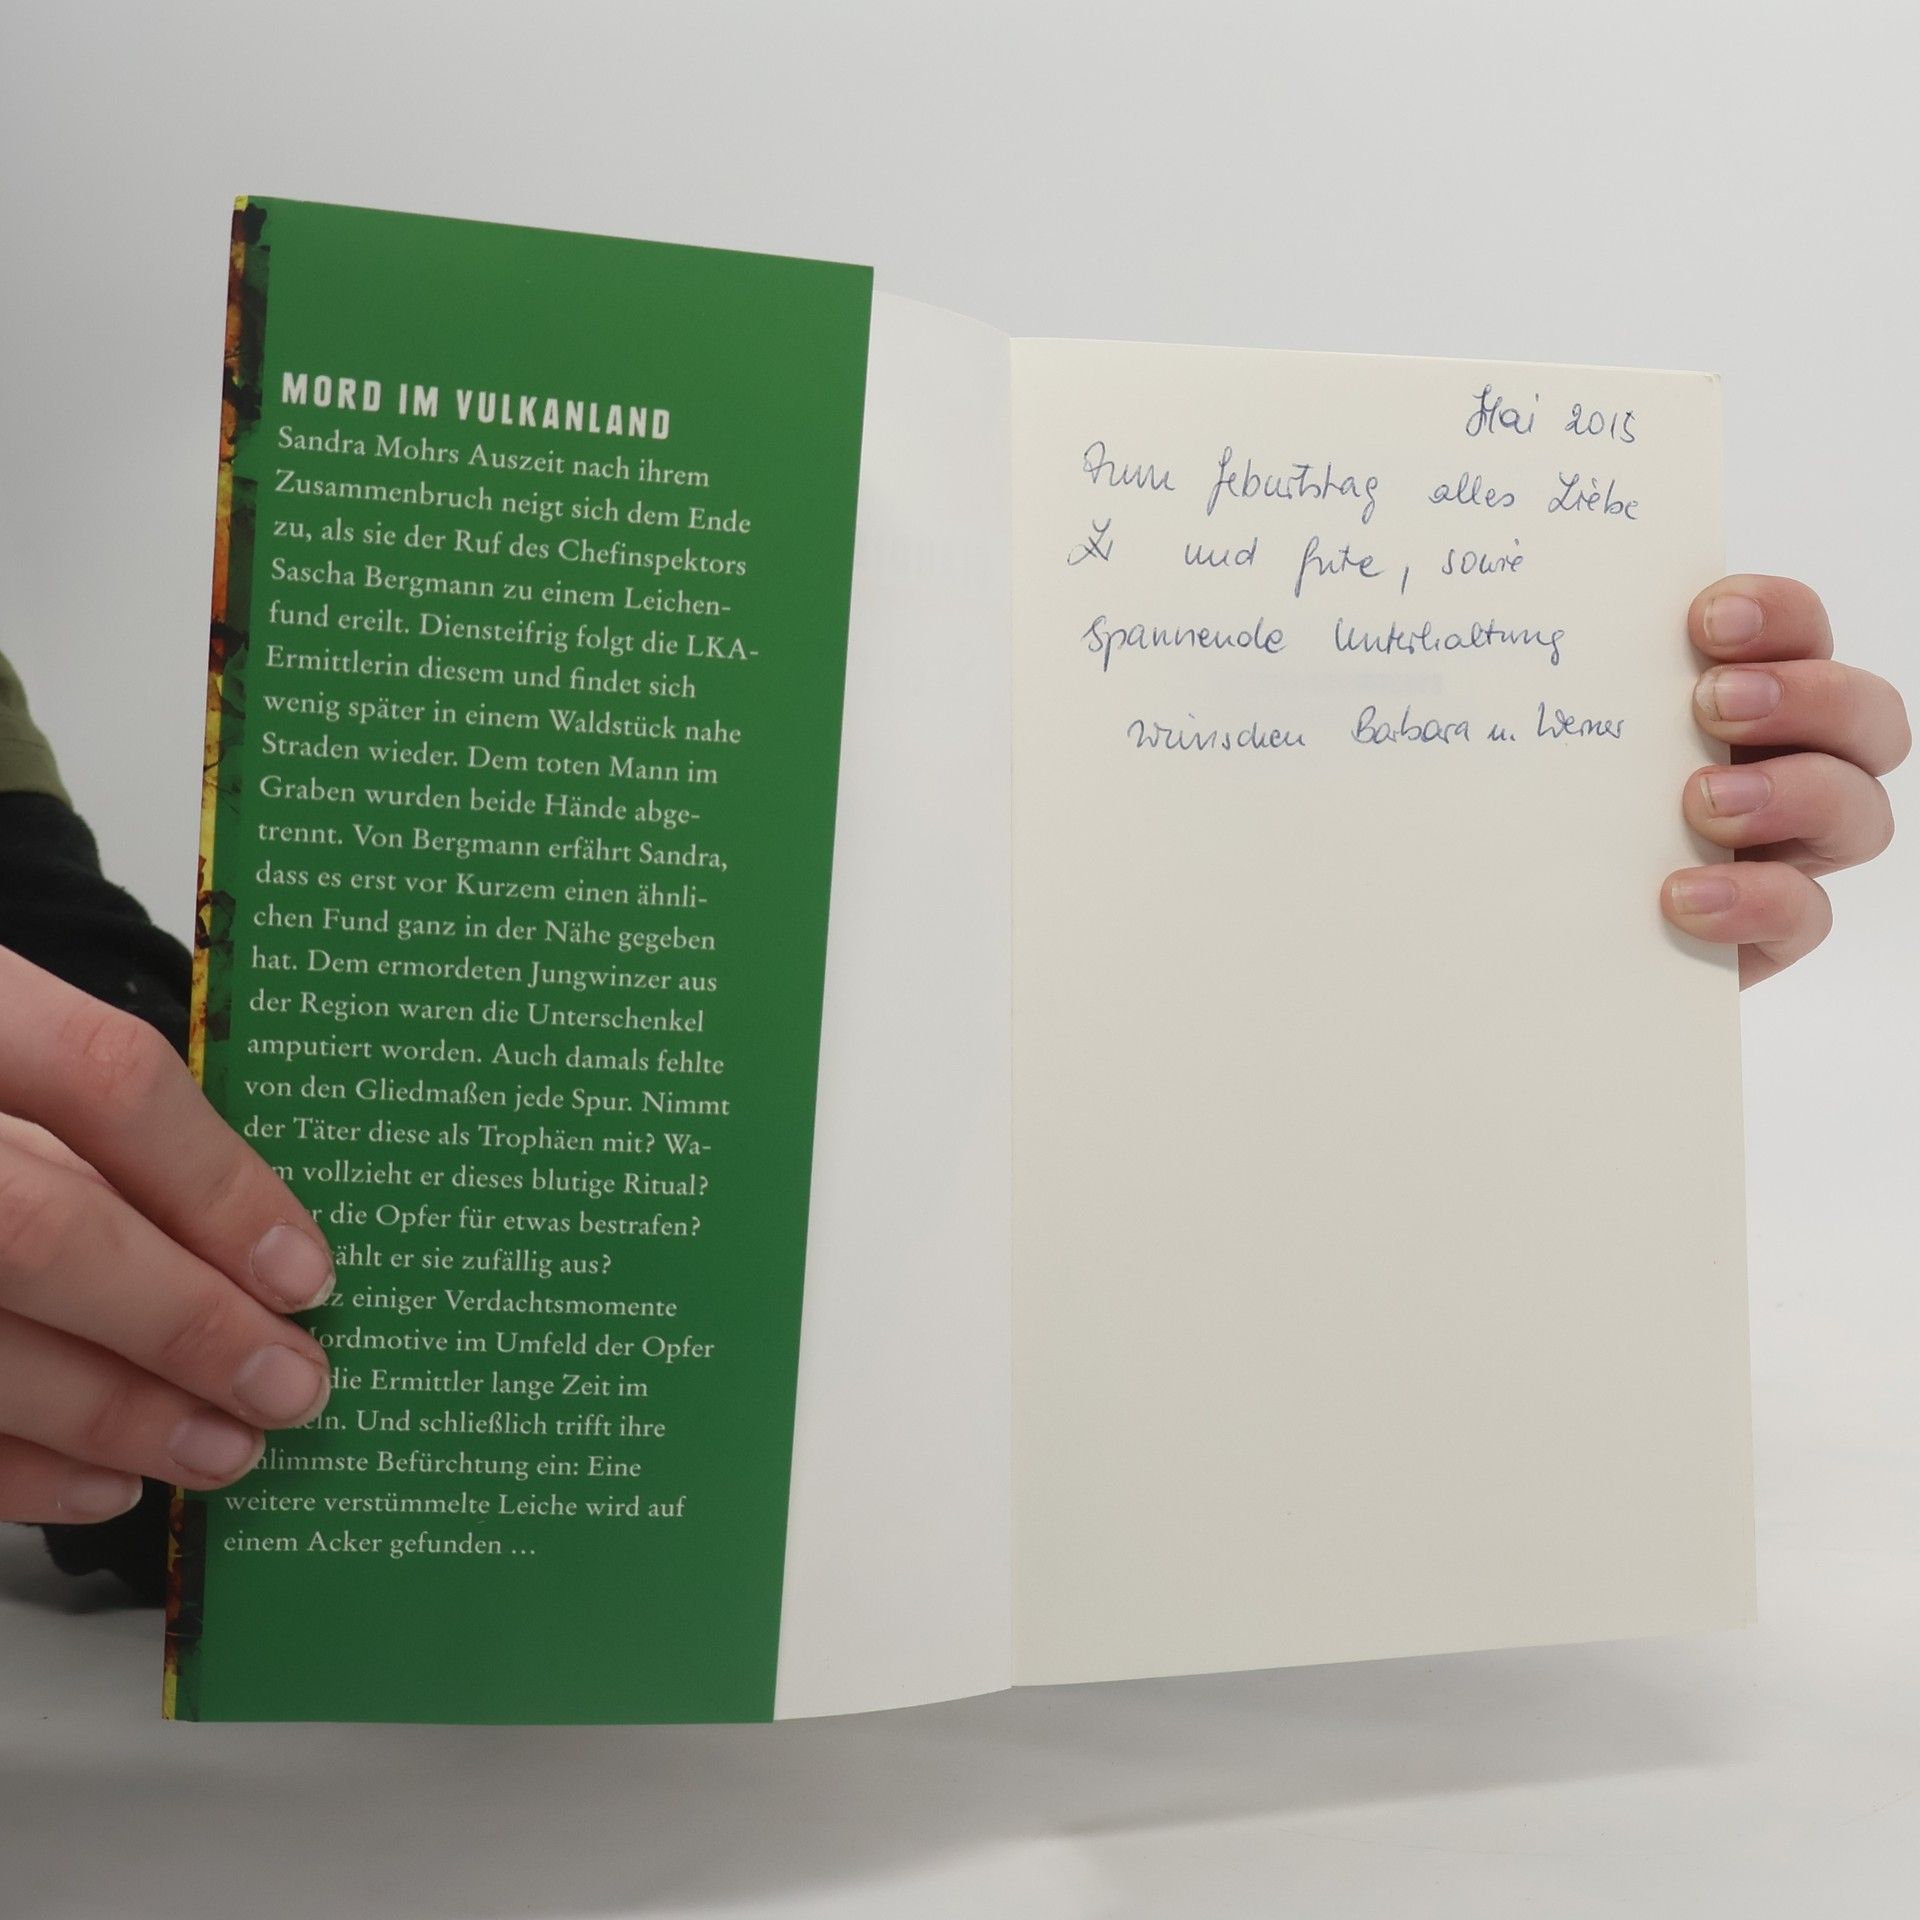 MORD IM VULKANLAND
Sandra Mohrs Auszeit nach ihrem
Zusammenbruch neigt sich dem Ende
zu, als sie der Ruf des Chefinspektors
Sascha Bergmann zu einem Leichen-
fund ereilt. Diensteifrig folgt die LKA-
Ermittlerin diesem und findet sich
wenig später in einem Waldstück nahe
Straden wieder. Dem toten Mann im
Graben wurden beide Hände abge-
trennt. Von Bergmann erfährt Sandra,
dass es erst vor Kurzem einen ähnli-
chen Fund ganz in der Nähe gegeben
hat. Dem ermordeten Jungwinzer aus
der Region waren die Unterschenkel
amputiert worden. Auch damals fehlte
von den Gliedmaßen jede Spur. Nimmt
der Täter diese als Trophäen mit? Wa-
m vollzieht er dieses blutige Ritual?
r die Opfer für etwas bestrafen?
ählt er sie zufällig aus?
z einiger Verdachtsmomente
ordmotive im Umfeld der Opfer
die Ermittler lange Zeit im
eln. Und schließlich trifft ihre
hlimmste Befürchtung ein: Eine
weitere verstümmelte Leiche wird auf
einem Acker gefunden …
Mai 2015
Zum Geburtstag alles Liebe
und Gute, sowie
spannende Unterhaltung
wünschen Barbara u. Werner